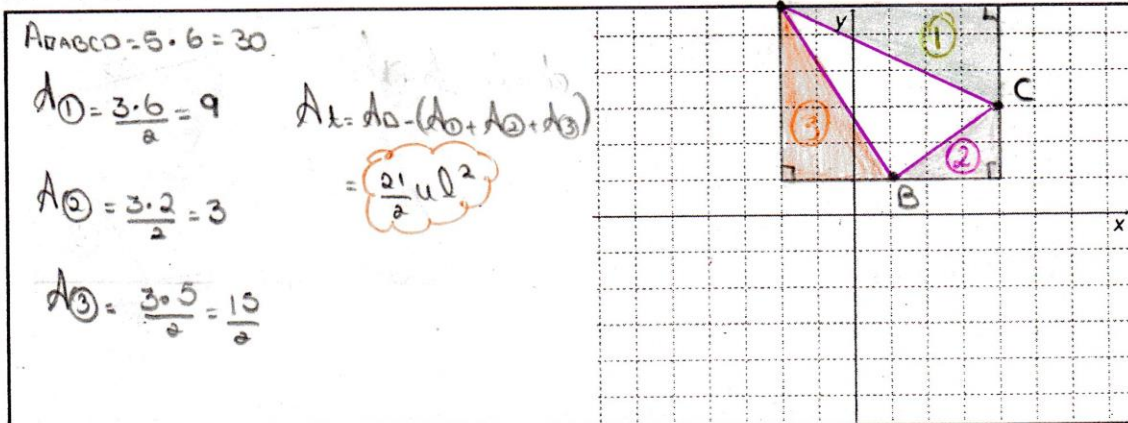 A▱ABCD = 5 · 6 = 30
A① = 3·6/2 = 9
At = A□ - (A① + A② + A③)
= 21/2 ul²
A② = 3·2/2 = 3
A③ = 3·5/2 = 15/2
y
①
C
③
②
B
x